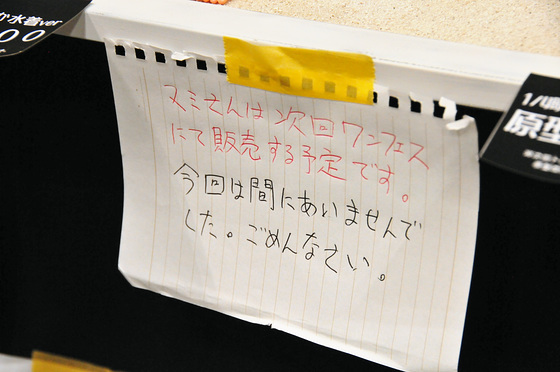 か水着ver
00
マミさんは次回ワンフェス
にて販売する予定です。
今回は間にあいませんで
した。ごめんなさい。
1/
原型